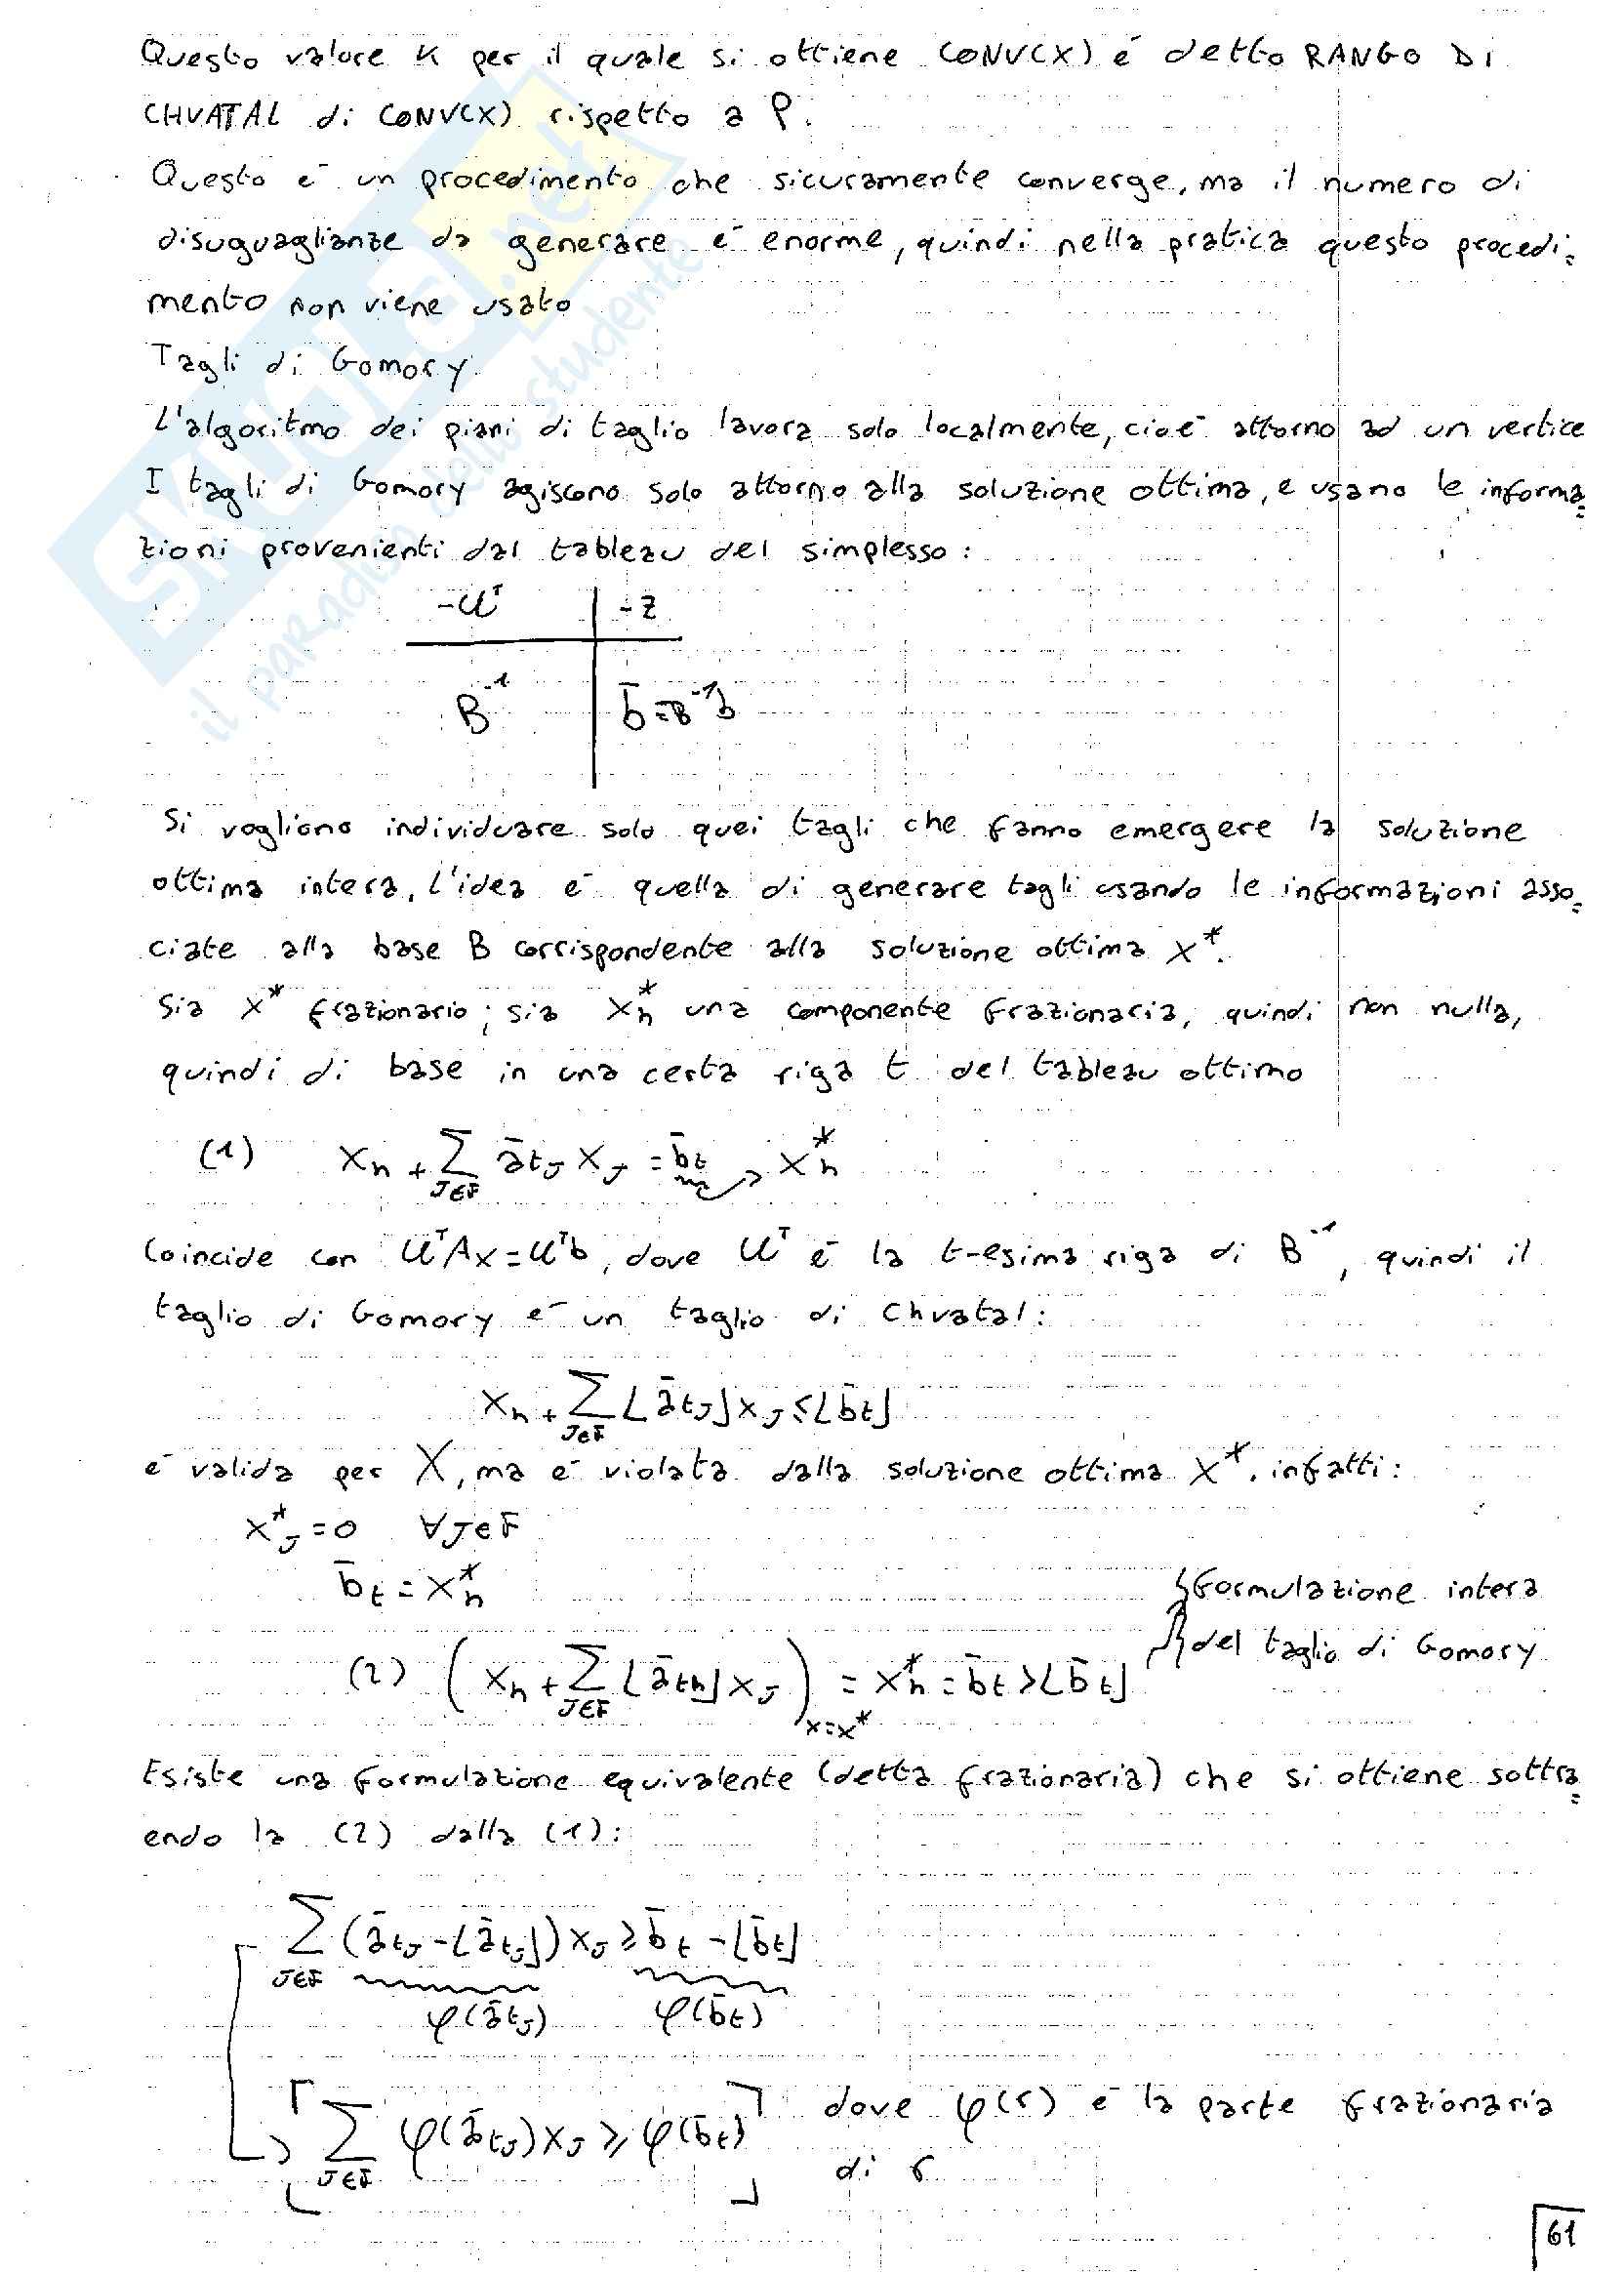 Questo valore K per il quale si ottiene CONV(X) è detto RANGO DI
CHVATAL di CONV(X) rispetto a P.
Questo è un procedimento che sicuramente converge, ma il numero di
disuguaglianze da generare è enorme, quindi nella pratica questo procedi=
mento non viene usato
Tagli di Gomory
L'algoritmo dei piani di taglio lavora solo localmente, cioè attorno ad un vertice
I tagli di Gomory agiscono solo attorno alla soluzione ottima, e usano le informa=
zioni provenienti dal tableau del simplesso:
-uᵀ | -z
B⁻¹ | b̄=B⁻¹b
Si vogliono individuare solo quei tagli che fanno emergere la soluzione
ottima intera, l'idea è quella di generare tagli usando le informazioni asso=
ciate alla base B corrispondente alla soluzione ottima x*.
Sia x* frazionario; sia xₕ* una componente frazionaria, quindi non nulla,
quindi di base in una certa riga t del tableau ottimo
(1) xₕ + Σ_{J∈F} ā_{tJ} x_J = b̄_t → xₕ*
Coincide con uᵀAx=uᵀb, dove uᵀ è la t-esima riga di B⁻¹, quindi il
taglio di Gomory è un taglio di Chvatal:
xₕ + Σ_{J∈F} ⌊ā_{tJ}⌋ x_J ≤ ⌊b̄_t⌋
è valida per X, ma è violata dalla soluzione ottima x*. infatti:
x*_J = 0 ∀J∈F
b̄_t = xₕ*
Formulazione intera
del taglio di Gomory
(2) (xₕ + Σ_{J∈F} ⌊ā_{th}⌋ x_J)_{x=x*} = xₕ* = b̄_t > ⌊b̄_t⌋
Esiste una formulazione equivalente (detta frazionaria) che si ottiene sottra=
endo la (2) dalla (1):
Σ_{J∈F} (ā_{tJ} - ⌊ā_{tJ}⌋) x_J ≥ b̄_t - ⌊b̄_t⌋
φ(ā_{tJ}) φ(b̄_t)
Σ_{J∈F} φ(ā_{tJ}) x_J ≥ φ(b̄_t) dove φ(r) è la parte frazionaria
di r
61
SKUOLA.net
il paradiso dello studente